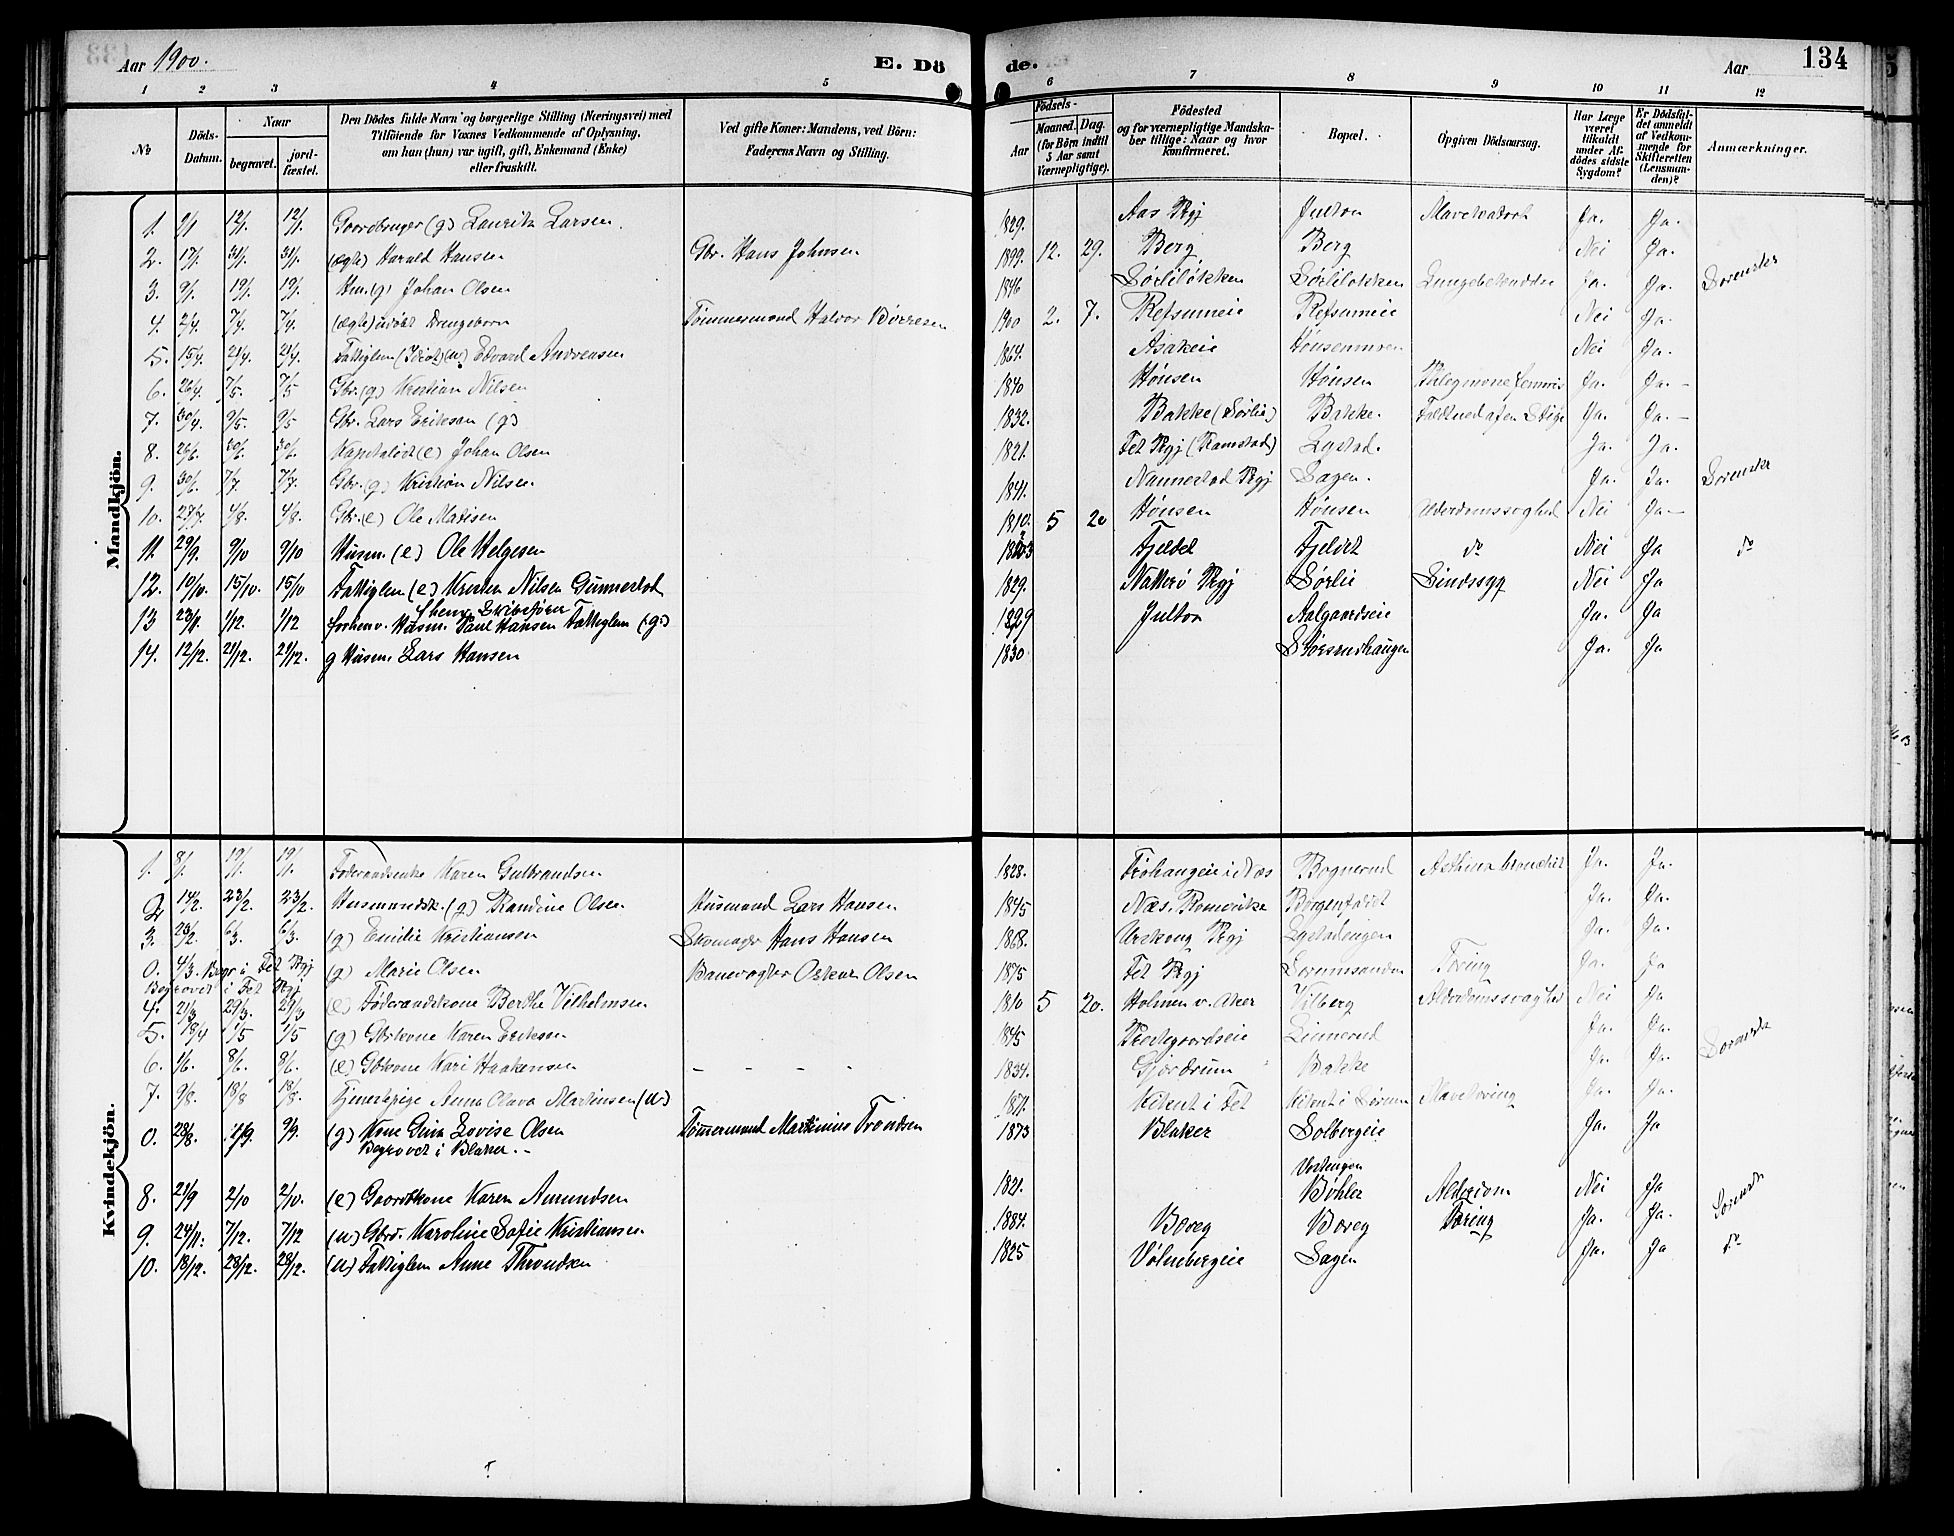 Aar 1900. E. Dö de. Aar 134
1 2 3 4 5 6 7 8 9 10 11 12
No
Döds-Datum.
Naar
begravet.
jord-fæstet.
Den Dödes fulde Navn og borgerlige Stilling (Næringsvei) med
Tilföiende for Voxnes Vedkommende af Oplysning,
om han (hun) var ugift, gift, Enkemand (Enke)
eller fraskilt.
Ved gifte Koner: Mandens, ved Börn:
Faderens Navn og Stilling.
Födsels-
Aar
Maaned. Dag.
(for Börn indtil
5 Aar samt
Værnepligtige).
Födested
og for værnepligtige Mandska-
ber tillige: Naar og hvor
konfirmeret.
Bopæl.
Opgiven Dödsaarsag.
Har Læge
været
tilkaldt
under Af-
dödes sidste
Sygdom?
Er Dödsfal-
det anmeldt
af Vedkom-
mende for
Skifteretten
(Lensman-
den)?
Anmærkninger.
Mandkjön.
1. 12/1. 12/1. Gaardbruger (g) Lauritz Larsen. 1829. Aas Pgj Julton Mavekatarh Ja. Ja.
2. 17/1. 31/1. 31/1. (ægte) Harald Hansen Gbr. Hans Johnsen 1899. 12. 29. Berg Berg Nei Ja.
3. 9/1. 19/1. 19/1. Hm. (g) Johan Olsen 1846 Sørliløkken Sørliløkken Lungebetændelse Ja. Ja. Sørenska
4. 2/4. 7/4. 7/4. (ægte) udøbt Drengebarn Tømmermand Halvor Børresen 1900 2. 7. Refsumeie Refsumeie Nei Ja.
5. 15/4. 21/4. 21/4. Fattiglem (Idiot) (u) Edvard Andreasen 1864. Asakeie Hønsenmoen Nei Ja.
6. 26/4. 7/5. 7/5 Gbr. (g) Kristian Nilsen 1840 Hønsen Hønsen Phlegmone femoris Ja. Ja. –
7. 30/4. 9/5. 9/5 Gbr. Lars Eriksen (g) 1832. Bakke (Sørlie) Bakke. Faldt ned af en Stige Ja. Ja. –
8. 26/6. 30/6. 30/6. Kapitalist (e) Johan Olsen 1821. Fet Pgj (Ramstad) Lystad. Ja. Ja.
9. 30/6. 7/7. 7/7. Gbr. (g) Kristian Nilsen 1841. Nannestad Pgj Sagen. Ja. Ja. Sørenska
10. 27/7. 4/8. 4/8. Gbr. (e) Ole Madsen 1810. 5 20 Hønsen Hønsen Alderdomssvaghed Nei Ja. –
11. 29/9. 9/10 9/10 Husm. (e) Ole Helgesen Fjeldet Fjeldet do Nei Ja do
12. 10/10. 15/10. 15/10 Fattiglem (e) Kresten Nilsen Gunnerstad 1829. Pgj Sørlie Sindssyg Nei Ja
13 23/11. 1/12. 1/12 forhenv. Husm. Paul Hansen Fattiglem (g) Julton Aalgaardseie Ja. Ja
14. 12/12. 21/12. 21/12. g Husm. Lars Hansen 1830. Ja. Ja
Kvindekjön.
1. 8/1. 19/1. 19/1. Føderaadsenke Karen Gulbrandsen 1828. Frohaugeie i Næs Bognerud Asthma bronchit Ja. Ja.
2 14/2. 23/2. 23/2. Husmandsk. (g) Randine Olsen Husmand Lars Hansen 1845 Næs. Romerike Ja. Ja.
3. 26/2. 6/3. 6/3. (g) Emilie Kristiansen Skomager Hans Hansen 1868. Urskoug Pgj Lystadengen Ja. Ja.
0. 4/3. Begr. i Fet Pgj (g) Marie Olsen Banevogter Oskar Olsen 1875 Fet Pgj Sørumsanden Tæring Ja. Ja
Begravet i Fet Pgj
4. 21/3 29/3. 29/3 (e) Føderaadskone Berthe Vilhelmsen 1810 5 20. Holmen v. Aker Vilberg Alderdomssvaghed Nei Ja
5. 18/4 1/5 1/5 (g) Gbrkone Karen Eriksen 1845 Prestegaardseie Linnerud Ja. Ja. Sørenska
6. 1/6. 8/6. 8/6. (e) Gbkone Kari Haakensen - - - - 1834. Gjerdrum Bakke Ja. Ja.
7. 9/8. 18/8 18/8. Tjenestepige Anna Olava Martinsen (u) 1871. Kitent i Fet Kitent i Sørum Mavetæring Ja. Ja.
0. 28/8. 9/9. 9/9. (g) Kone Gina Lovise Olsen Tømmermand Martinius Trondsen 1873 Blaker Solbergeie Ja. Ja
Begravet i Blaker. –
8. 21/9 2/10 2/10. (e) Gaardkone Karen Amundsen 1821. Bøhler Alderdom Nei Ja Sørenska
9. 24/11. 7/12. 7/12 (u) Gbrd. Karoline Sofie Kristiansen 1884. Bæreg Bæreg Tæring Ja. Ja.
10. 18/12. 28/12. 28/12. (u) Fattiglem Anne Throndsen 1825 Vølnebergeie Sagen Ja. Ja do